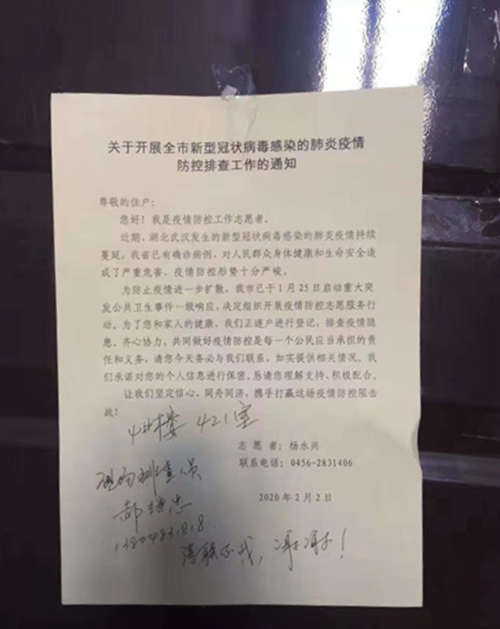 关于开展全市新型冠状病毒感染的肺炎疫情
防控排查工作的通知
尊敬的住户：
您好！我是疫情防控工作志愿者。
近期，湖北武汉发生的新型冠状病毒感染的肺炎疫情持续
蔓延，我省已有确诊病例，对人民群众身体健康和生命安全造
成了严重危害，疫情防控形势十分严峻。
为防止疫情进一步扩散，我市已于1月25日启动重大突
发公共卫生事件一级响应，决定组织开展疫情防控志愿服务行
动。为了您和家人的健康，我们正逐户进行登记，排查疫情隐
患。齐心协力，共同做好疫情防控是每一个公民应当承担的责
任和义务，请您今天务必与我们联系，如实提供相关情况。我
们承诺对您的个人信息进行保密，恳请您理解支持、积极配合。
让我们坚定信心，同舟同济，携手打赢这场疫情防控阻击
战！
4#楼 421室
志愿者：杨永兴
联系电话：0456-2831406
员
郝
2020年2月2日
请联系我，谢谢！